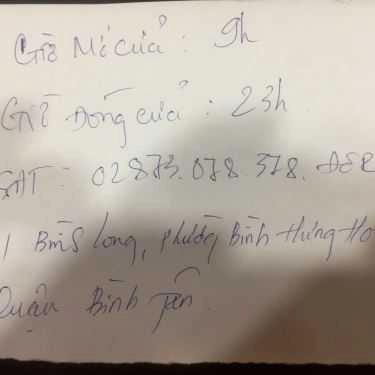 Giờ Mở cửa : 9h
Giờ Đóng cửa : 23h
SĐT : 02873.078.378.
1 Bình Long, phường Bình Hưng Ho
Quận Bình Tân